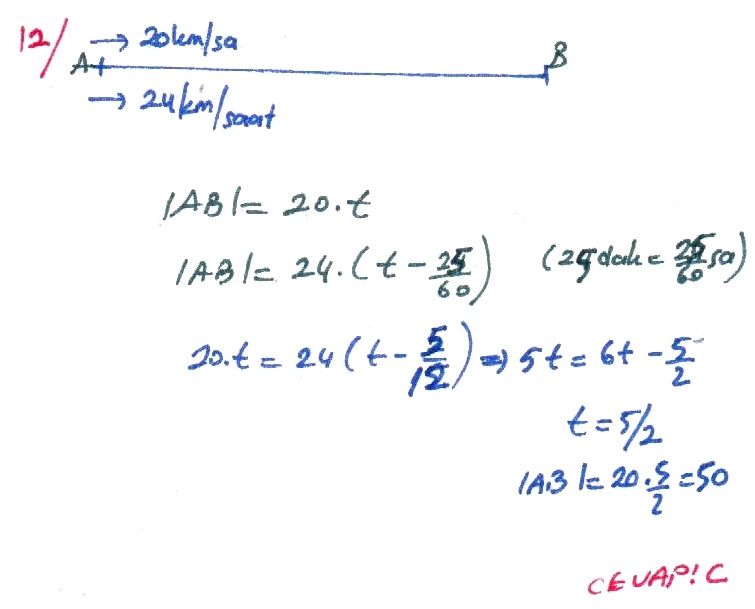 12/ → 20km/sa
A B
→ 24km/saat
|AB|= 20.t
|AB|= 24.(t-25/60) (25dak = 25/60 sa)
20.t = 24(t-5/12) ⇒ 5t = 6t - 5/2
t = 5/2
|AB|= 20.5/2 = 50
CEVAP: C